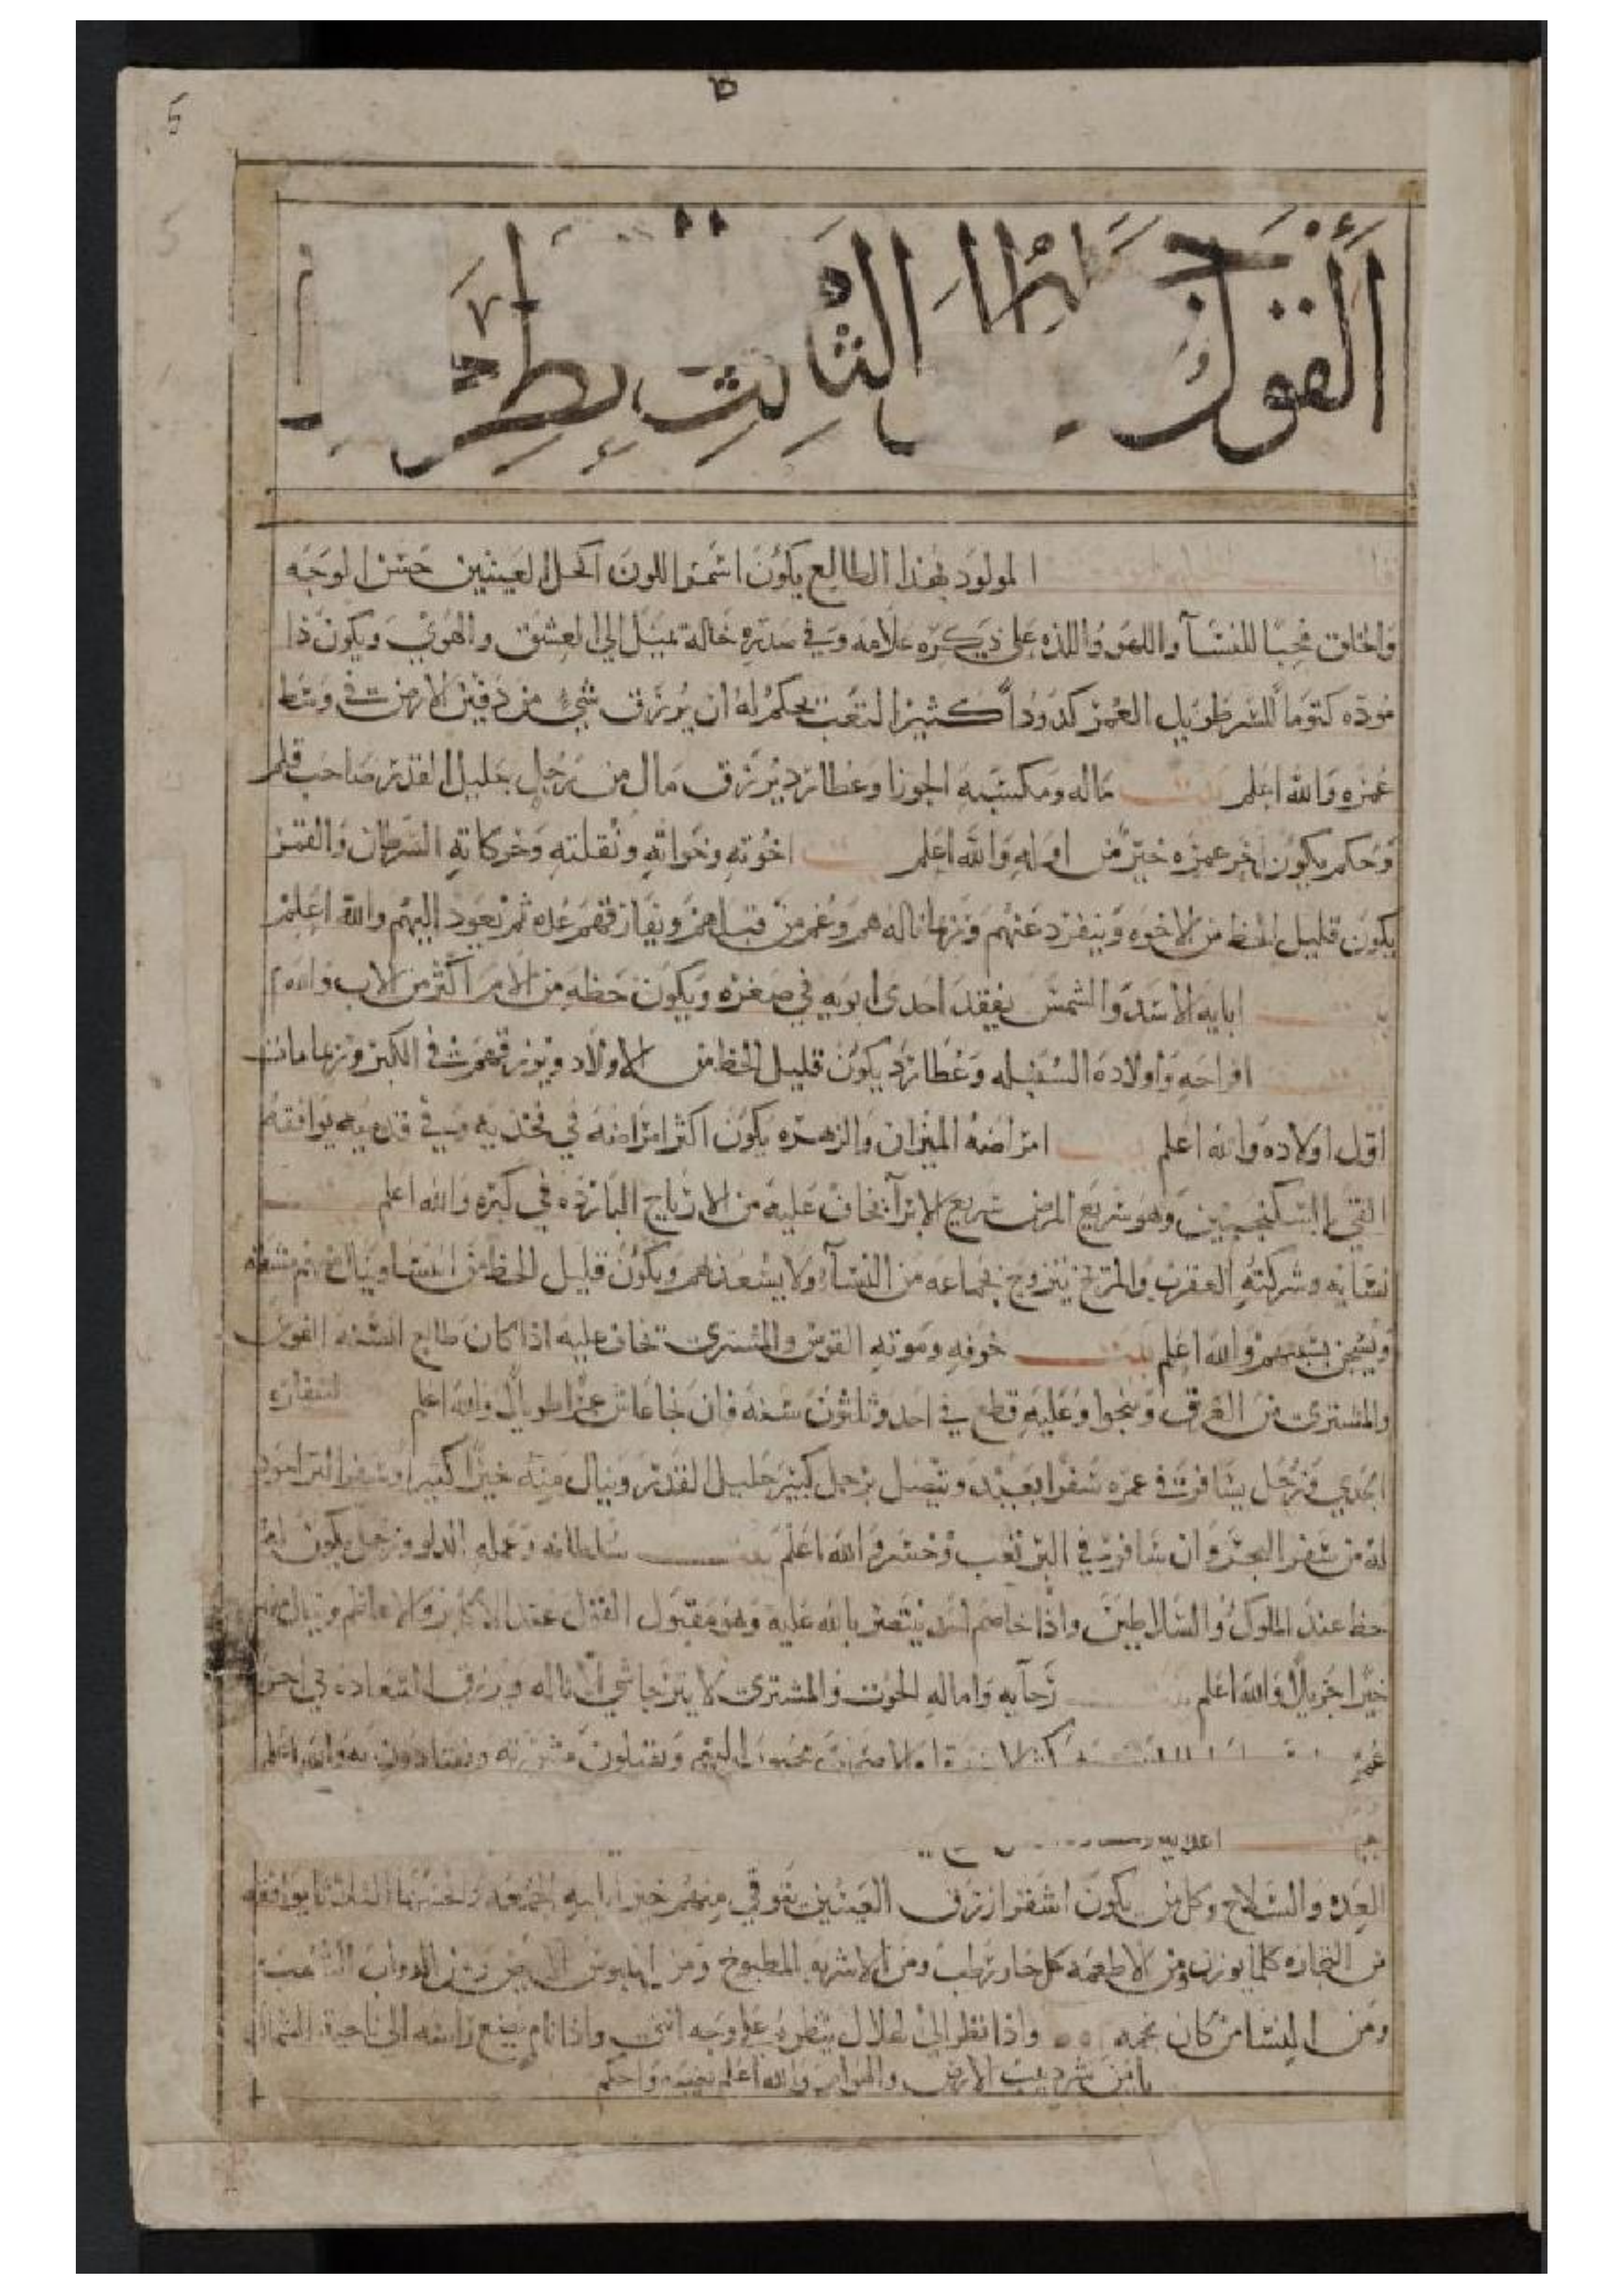 5
القول
الثالث
المولود بهذا الطالع يكون اسمر اللون اكحل العينين حسن الوجه
والخلق محبا للنسآ واللهو واللذه على ذكره علامه وفي صدره خاله يميل الي العشق والهوي ويكون ذا
موده كتوما للسر طويل العمر كدودا كثير التعب يحكم له ان يرزق شيء من دفين الارض في وسط
عمره والله اعلم بيت ماله ومكسبه الجوزا وعطارد يرزق مال من رجل جليل القدر صاحب قلم
وحكم يكون اخر عمره خير من اوله والله اعلم بيت اخوته وخواته ونقلته وحركاته السرطان والقمر
يكون قليل الحظ من الاخوه وينفرد عنهم وربما ناله هم وغم من قبلهم ويفارقهم عده ثم يعود اليهم والله اعلم
ابايه الاسد والشمس يفقد احدى ابويه في صغره ويكون حظه من الام اكثر من الاب والله
افراحه واولاده السنبله وعطارد يكون قليل الحظ من الاولاد ويرزقهم في الكبر وربما مات
اول اولاده والله اعلم امراضه الميزان والزهره يكون اكثر امراضه في فخذيه وفي قدميه يوافقه
القي بالسكنجبين وهو سريع المرض سريع الابرآ يخاف عليه من الارياح البارده في كبره والله اعلم
نسايه وشركته العقرب والمريخ يتزوج بجماعه من النسآ ولا يسعد بهم ويكون قليل الحظ من النسا وينال منهم مشقه
ويسجن بسببهم والله اعلم بيت خوفه وموته القوس والمشتري تخاف عليه اذا كان طالع السنه القوس
والمشتري من الغرق وينجوا وعليه قطع في احد وثلثون سنه فان نجا عاش عمرا طويلا والله اعلم اسفاره
الجدي وزحل يسافر في عمره سفرا بعيد ويتصل برجل كبير جليل القدر وينال منه خيرا كثيرا وسفر البر اجود
له من سفر البحر وان سافر في البر تعب وخسر والله اعلم بيت سلطانه وعمله الدلو وزحل يكون له
حظ عند الملوك والسلاطين واذا خاصم احد ينتصر بالله عليه وهو مقبول القول عند الاكابر والاعاظم وينال منهم
خيرا جزيلا والله اعلم رجآيه واماله الحوت والمشتري لا يترجا شي الا ناله ويرزق السعاده في اخر
عمره
اعدايه
العده والسلاح وكل من يكون اشقر ازرق العينين يتوقي منهم خير ايامه الجمعه واخسها الثلاثا يوافقه
من التجاره كلما يوزن ومن الاطعمه كل حار رطب ومن الاشربه المطبوخ ومن الملبوس الابيض ومن الدواب
ومن النسا من كان نجمه واذا نظر الي الهلال ينظره على وجه انثى واذا نام يضع راسه الى ناحية الشمال
يامن شر دبيب الارض والهوام والله اعلم بغيبه واحكم